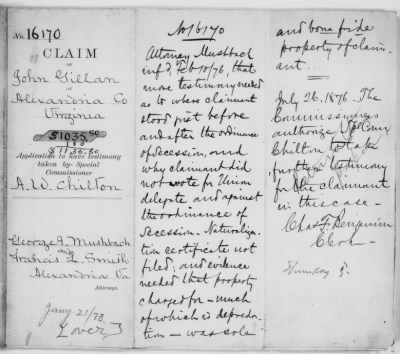 No. 16170
CLAIM
OF
John Gillan
OF
Alexandria Co
Virginia
$1035.50
$1135.50
Application to have testimony
taken by Special
Commissioner
A. W. Chilton
George A. Mushbach
and
Francis L. Smith
Alexandria Va
Attorneys.
Jany 21/73
(over)
No 16170
Attorney Mushbach
infd Feb 10/76, that
more testimony needed
as to where claimant
stood just before
and after the ordinance
of secession, and
why claimant did
not vote for Union
delegate and against
the ordinance of
secession. Naturaliza-
tion certificate not
filed; and evidence
needed that property
charged for - much
of which is depreda-
tion - was sole
and bona fide
property of claim-
ant.
July 26. 1876. The
Commissioners
authorize Spl Com
Chilton to take
further testimony
for the claimant
in this case -
Chas. F. Benjamin
Clerk -